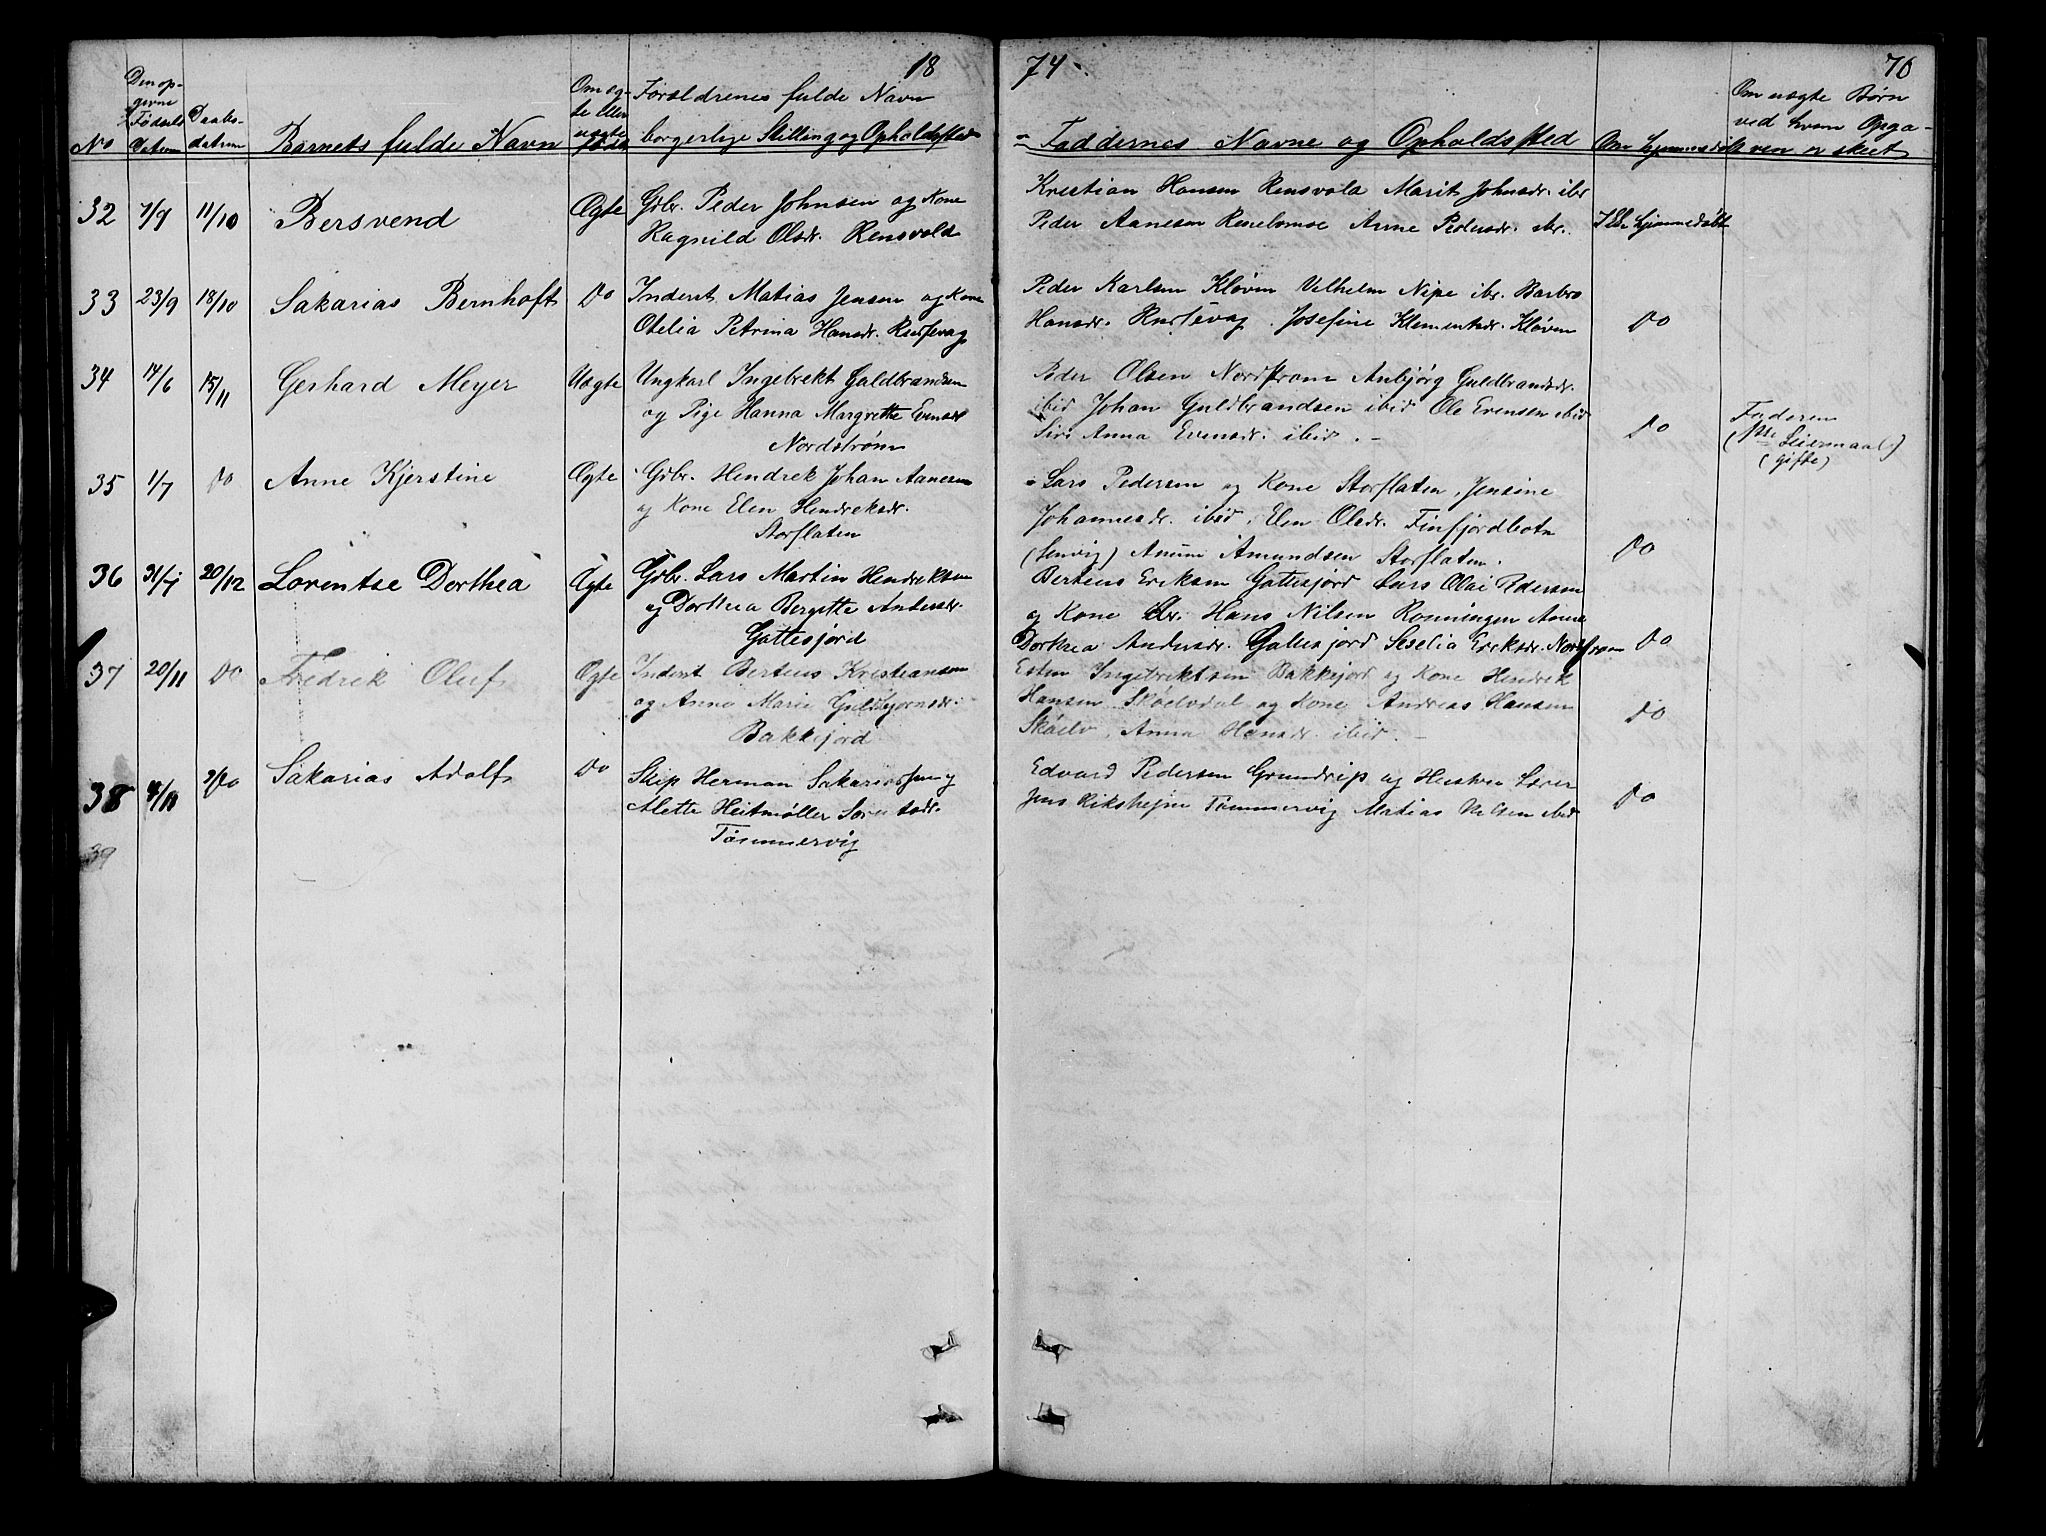 18 74. 70
No
Den op-
givne
Fødsels
datum
Daabs-
datum
Barnets fulde Navn
Om æg-
te eller
uægte
født
Forældrenes fulde Navn
borgerlige Stilling og Opholdssted
Faddernes Navne og Opholdssted
Om hjemmedøbt
Om uægte Børn
ved hvem Opga-
ven er skeet
32 7/9 11/10 Bersvend Ægte
Gbr. Peder Johnsen og Kone
Ragnild Olsdr. Rensvold
Kristian Hansen Rensvola Marit Johnsdr. ibr
Peder Aanesen Anne Pedersdr. ibr.
Ikke hjemmedøbt
33 23/9 18/10 Sakarias Bernhoft Do
Inderst Matias Jensen og Kone
Otelia Petrina Hansdr.
Peder Karlsen Kløven Vilhelm Nipe ibr. Barbro
Hansdr. Josefine Klementsdr. Kløven
Do
34 14/6 15/11 Gerhard Meyer Uægte
Ungkarl Ingebrekt Guldbrandsen
og Pige Hanna Margrethe Evensdr
Nordstrøm
Peder Olsen Nordstrøm Anbjørg Guldbrandsdr.
ibid Johan Guldbrandsen ibid Ole Evensen ibid
Siri Anna Evensdr. ibid. -
Do
Faderen
(1ste Leiermaal)
(gifte)
35 1/7 Do Anne Kjerstine Ægte
Gbr. Hendrek Johan Aanesen
og Kone Elen Hendreksdr.
Storflaten
Lars Pedersen og Kone Storflaten, Jensine
Johannesdr. ibid, Elen Olsdr. Finfjordbotn
(Lenvig) Amundsen Storflaten.
Do
36 31/7 20/12 Lorentse Dorthea Ægte
Gbr. Lars Martin Hendriksen
og Dorthea Bergitte Andersdr.
Gottesjord
Berteus Eriksen Gottesjord Lars Olai Pedersen
og Kone Hans Nilsen Rønningen Anne
Dorthea Andersdr. Gottesjord Seselia Eriksdr. Nordstrøm
Do
37 20/11 Do Fredrik Oluf Ægte
Inderst Berteus Kristiansen
og Anna Marie Guldbjørnsdr.
Bakkejord
Esten Ingebriktsen Bakkejord og Kone Hendrik
Hansen Skøelvdal og Kone Andreas Hansen
Skøelv, Anna Hansdr. ibid. -
Do
38 Do Sakarias Adolf Do
Skip Herman Sakariassen og
Mette Heitmøller
Tømmervig
Edvard Pedersen Grundrip og Hustru Lærer
Jens Tømmervig Matias Nilsen ibid
Do
39